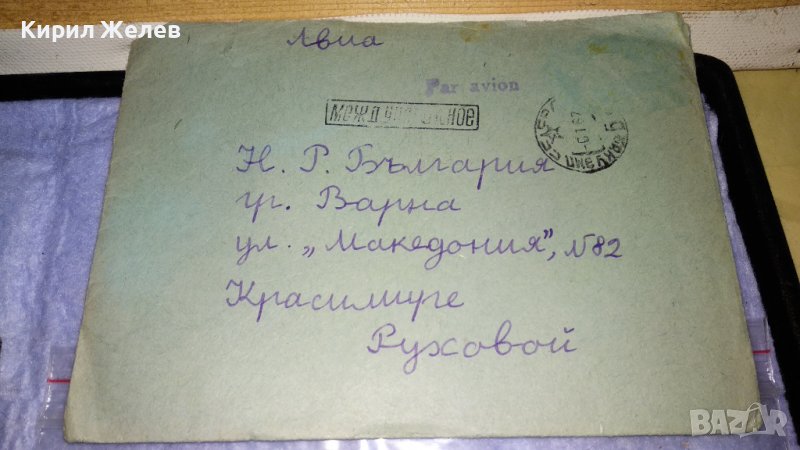 Кирил Желев
Авиа
Par avion
МЕЖДУНАРОДНОЕ
Н. Р. България
гр. Варна
ул. „Македония", №82
Красимире
Руховой
BAZAR